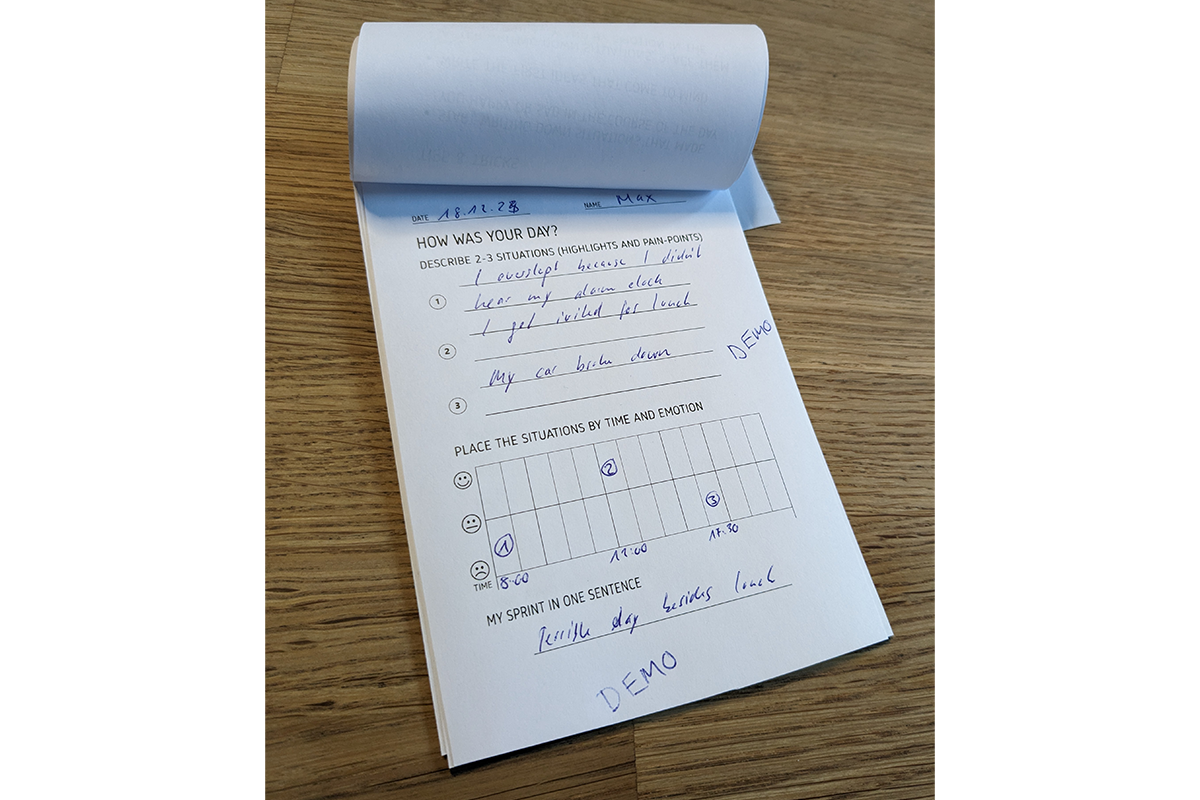 DATE 18.12.23 NAME Max
HOW WAS YOUR DAY?
DESCRIBE 2-3 SITUATIONS (HIGHLIGHTS AND PAIN-POINTS)
I overslept because I didn't
1 hear my alarm clock
I get ivited for lunch
2
My car broke down
DEMO
3
PLACE THE SITUATIONS BY TIME AND EMOTION
2
3
1
TIME 8:00 12:00 17:30
MY SPRINT IN ONE SENTENCE
Terrible day besides lunch
DEMO